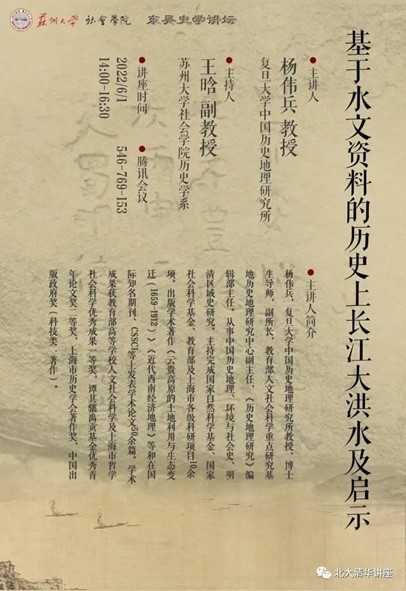 苏州大学 社会学院 东吴史学讲坛
基于水文资料的历史上长江大洪水及启示
主讲人
杨伟兵 教授
复旦大学中国历史地理研究所
主持人
王晗 副教授
苏州大学社会学院历史学系
讲座时间
2022/6/1
14:00-16:30
腾讯会议
546-769-153
主讲人简介
杨伟兵,复旦大学中国历史地理研究所教授、博士
生导师,副所长,教育部人文社会科学重点研究基
地历史地理研究中心副主任,《历史地理研究》编
辑部主任。从事中国历史地理、环境与社会史、明
清区域史研究。主持完成国家自然科学基金、国家
社会科学基金、教育部及上海市各级科研项目10余
项。出版学术著作《云贵高原的土地利用与生态变
迁(1659-1912)》《近代西南经济地理》等和在国
际知名期刊、CSSCI等上发表学术论文50余篇。学术
成果获教育部高等学校人文社会科学及上海市哲学
社会科学优秀成果一等奖、谭其骧禹贡基金优秀青
年论文奖一等奖,上海市历史学会著作奖,中国出
版政府奖(科技类 著作)。
北大清华讲座